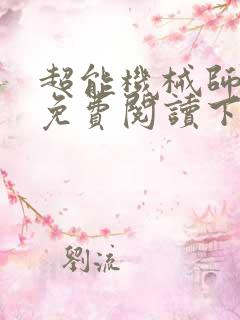 超能機械師
免費閱讀下
劉流